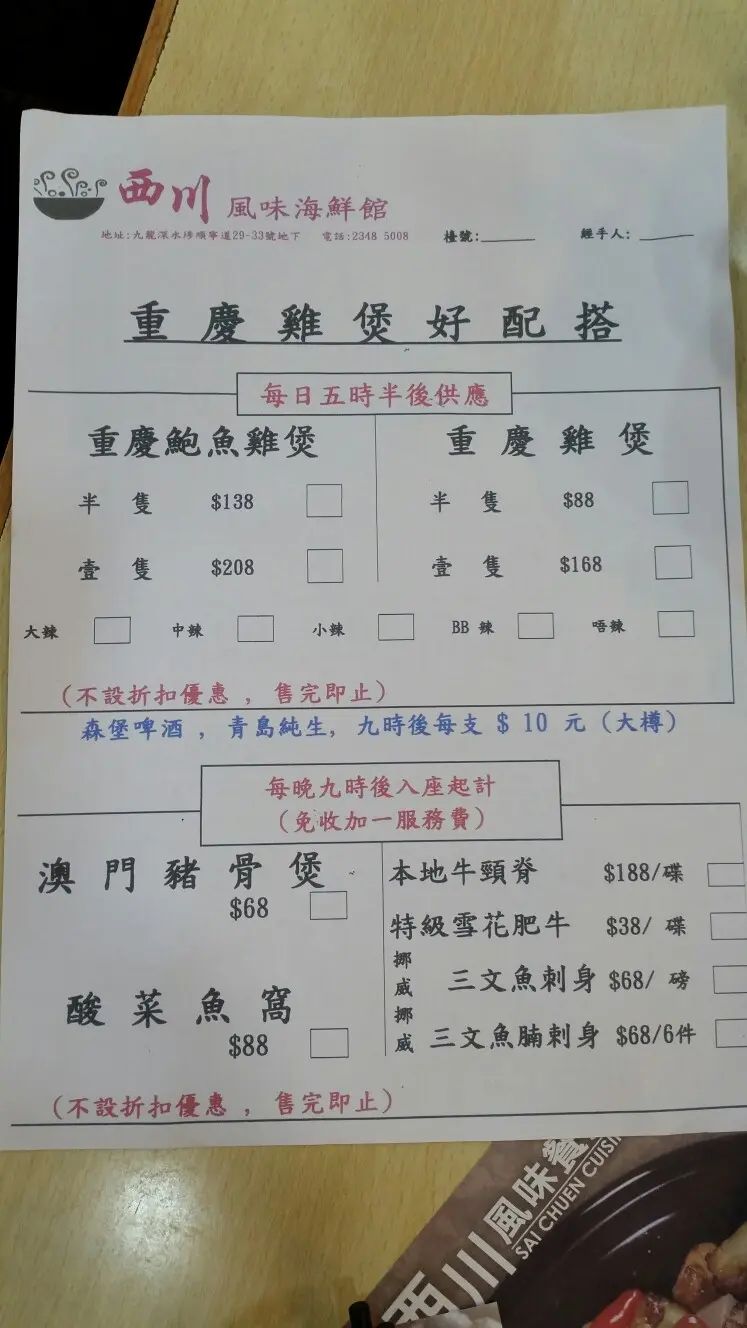 西川 風味海鮮館
地址:九龍深水埗順寧道29-33號地下 電話:2348 5008 檯號:______ 經手人: ______
重慶雞煲好配搭
每日五時半後供應
重慶鮑魚雞煲 重慶雞煲
半隻 $138 半隻 $88
壹隻 $208 壹隻 $168
大辣 中辣 小辣 BB 辣 唔辣
(不設折扣優惠 , 售完即止)
森堡啤酒 , 青島純生, 九時後每支 $ 10 元 (大樽)
每晚九時後入座起計
(免收加一服務費)
澳門豬骨煲
$68
酸菜魚窩
$88
本地牛頸脊 $188/碟
特級雪花肥牛 $38/ 碟
挪威 三文魚刺身 $68/ 磅
挪威 三文魚腩刺身 $68/6件
(不設折扣優惠 , 售完即止)
西川風味餐
SAI CHUEN CUISI